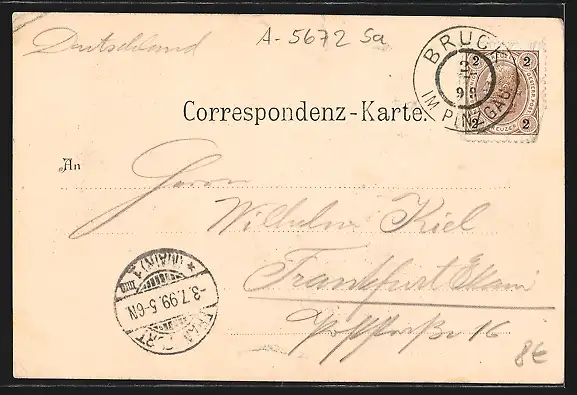 Deutschland
A-5672 Sa
BRUCK
IM PINZGAU
2 2
2 KREUZER 2
Correspondenz-Karte.
An
Herrn
Wilhelm Kiel
Frankfurt
16
FRANKFURT
* (MAIN) 1
-3.7.99.5-6N.
8€